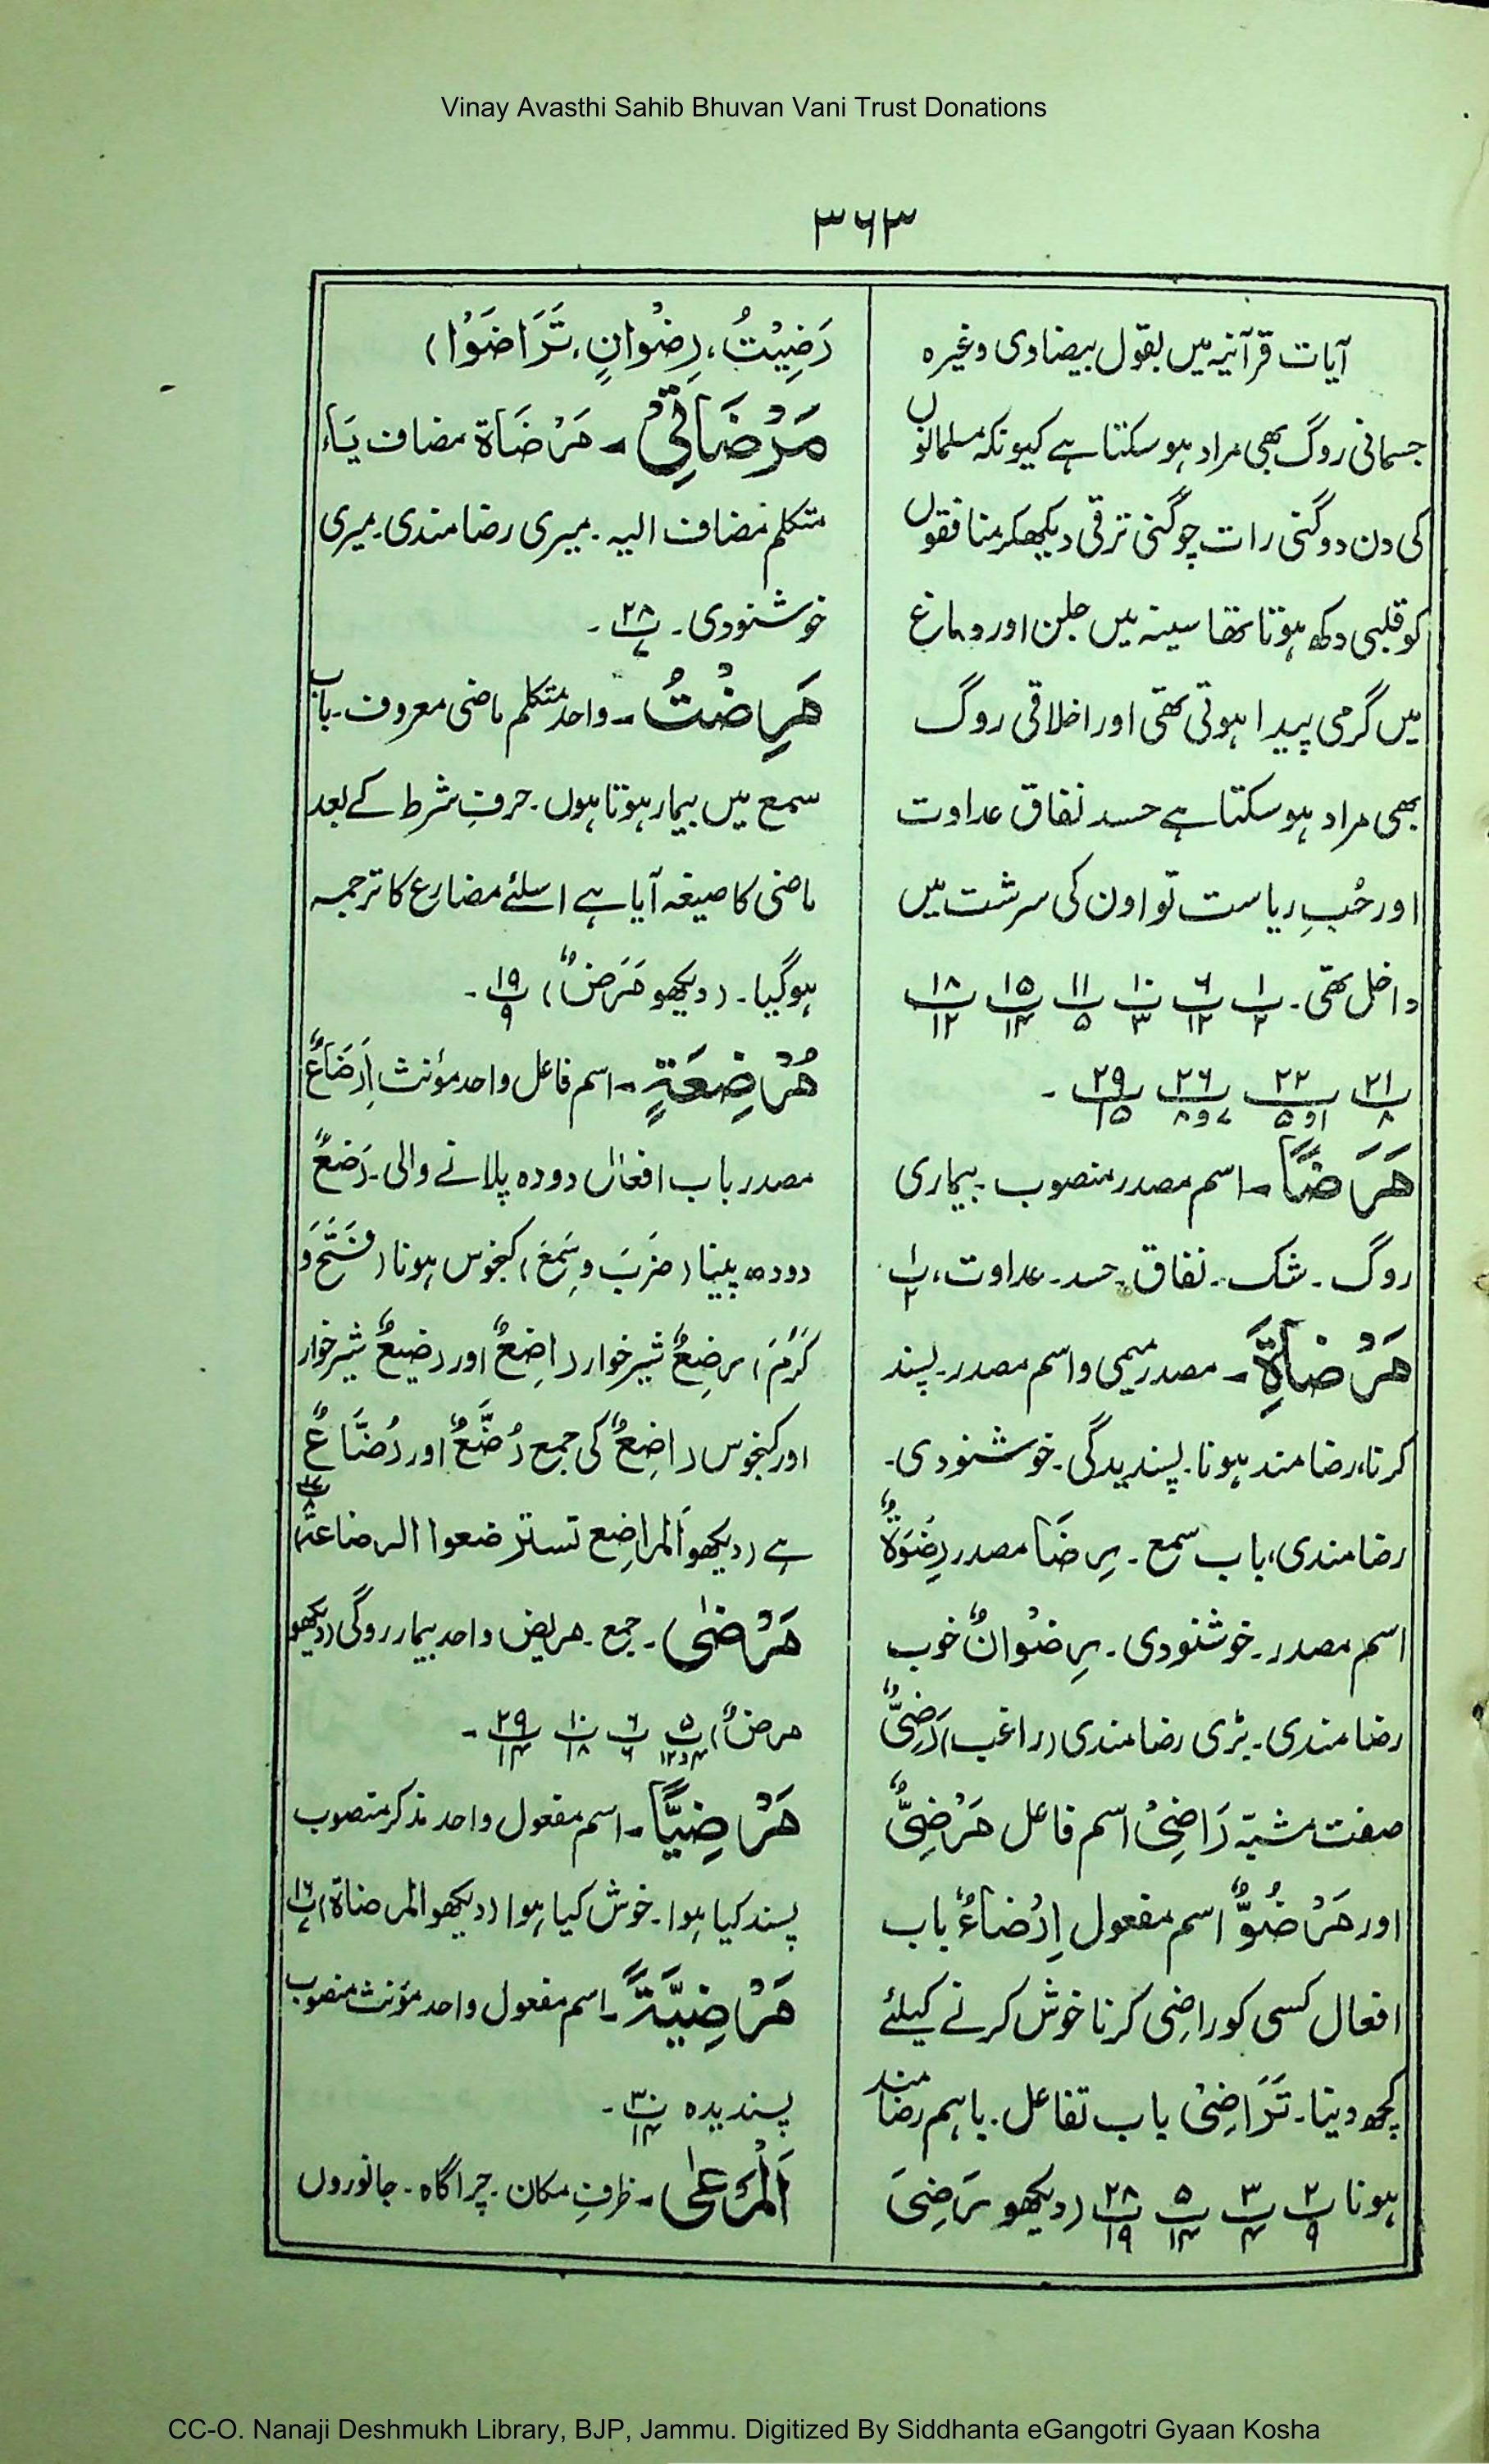 Vinay Avasthi Sahib Bhuvan Vani Trust Donations
۳۶۳
آیات قرآنیہ میں بقول بیضاوی وغیرہ
جسمانی روگ بھی مراد ہو سکتا ہے کیونکہ مسلمانوں
کی دن دوگنی رات چوگنی ترقی دیکھکر منافقوں
کو قلبی دکھ ہوتا تھا سینہ میں جلن اور دماغ
میں گرمی پیدا ہوتی تھی اور اخلاقی روگ
بھی مراد ہو سکتا ہے حسد نفاق عداوت
اور حُبِ ریاست تو اون کی سرشت میں
داخل تھی۔ پ۱/۲ پ۶/۱۲ پ۱۰/۳ پ۱۱/۵ پ۱۵/۱۴ پ۱۸/۱۲
پ۲۱/۸ پ۲۲/۱و۵ پ۲۶/۷و۸ پ۲۹/۱۵ ۔
مَرَضًا۔ اسم مصدر منصوب۔ بیماری
روگ۔ شک۔ نفاق۔ حسد۔ عداوت، پ۱/۲
مَرْضَاۃِ۔ مصدر میمی و اسم مصدر۔ پسند
کرنا، رضامند ہونا۔ پسندیدگی۔ خوشنودی۔
رضامندی، باب سمع۔ رِضَا مصدر رِضْوَۃٌ
اسم مصدر۔ خوشنودی۔ رِضْوَانٌ خوب
رضامندی۔ بڑی رضامندی (راغب) رَضِیٌّ
صفت مشبہ رَاضِیْ اسم فاعل مَرْضِیٌّ
اور مَرْضُوٌّ اسم مفعول اِرْضَاءٌ باب
افعال کسی کو راضی کرنا خوش کرنے کیلئے
کچھ دینا۔ تَرَاضِیْ باب تفاعل۔ باہم رضامند
ہونا پ۲/۹ پ۳/۴ پ۵/۱۴ پ۲۸/۱۹ (دیکھو رَضِیَ
رَضِیْتُ، رِضْوَانٍ، تَرَاضَوْا)
مَرْضَاتِیْ۔ مَرْضَاۃ مضاف یَاء
متکلم مضاف الیہ۔ میری رضامندی۔ میری
خوشنودی۔ پ۲۸/۷ ۔
مَرِضْتُ۔ واحد متکلم ماضی معروف۔ باب
سمع میں بیمار ہوتا ہوں۔ حرفِ شرط کے بعد
ماضی کا صیغہ آیا ہے اسلئے مضارع کا ترجمہ
ہوگیا۔ (دیکھو مَرَضٌ) پ۱۹/۹ ۔
مُرْضِعَۃٍ۔ اسم فاعل واحد مؤنث اِرْضَاعٌ
مصدر باب افعال دودہ پلانے والی۔ رَضِعٌ
دودہ پینا (ضَرَبَ و سَمِعَ) کنجوس ہونا (فَتَحَ و
کَرُمَ) رَضِعٌ شیرخوار رَاضِعٌ اور رضیعٌ شیرخوار
اور کنجوس رَاضِعٌ کی جمع رُضَّعٌ اور رُضَّاعٌ
ہے (دیکھو المراضِع تسترضعوا الرضاعۃ) پ۱۷/۸
مَرْضٰی۔ جمع۔ مریض واحد بیمار روگی (دیکھو
مرضٌ) پ۵/۴و۱۲ پ۶/۶ پ۱۰/۱۸ پ۲۹/۱۴ ۔
مَرْضِیًّا۔ اسم مفعول واحد مذکر منصوب
پسند کیا ہوا۔ خوش کیا ہوا (دیکھو المرضاۃ) پ۱۶/۷
مَرْضِیَّۃً۔ اسم مفعول واحد مؤنث منصوب
پسندیدہ پ۳۰/۱۴ ۔
اَلْمَرْعٰی۔ ظرفِ مکان۔ چراگاہ۔ جانوروں
CC-O. Nanaji Deshmukh Library, BJP, Jammu. Digitized By Siddhanta eGangotri Gyaan Kosha